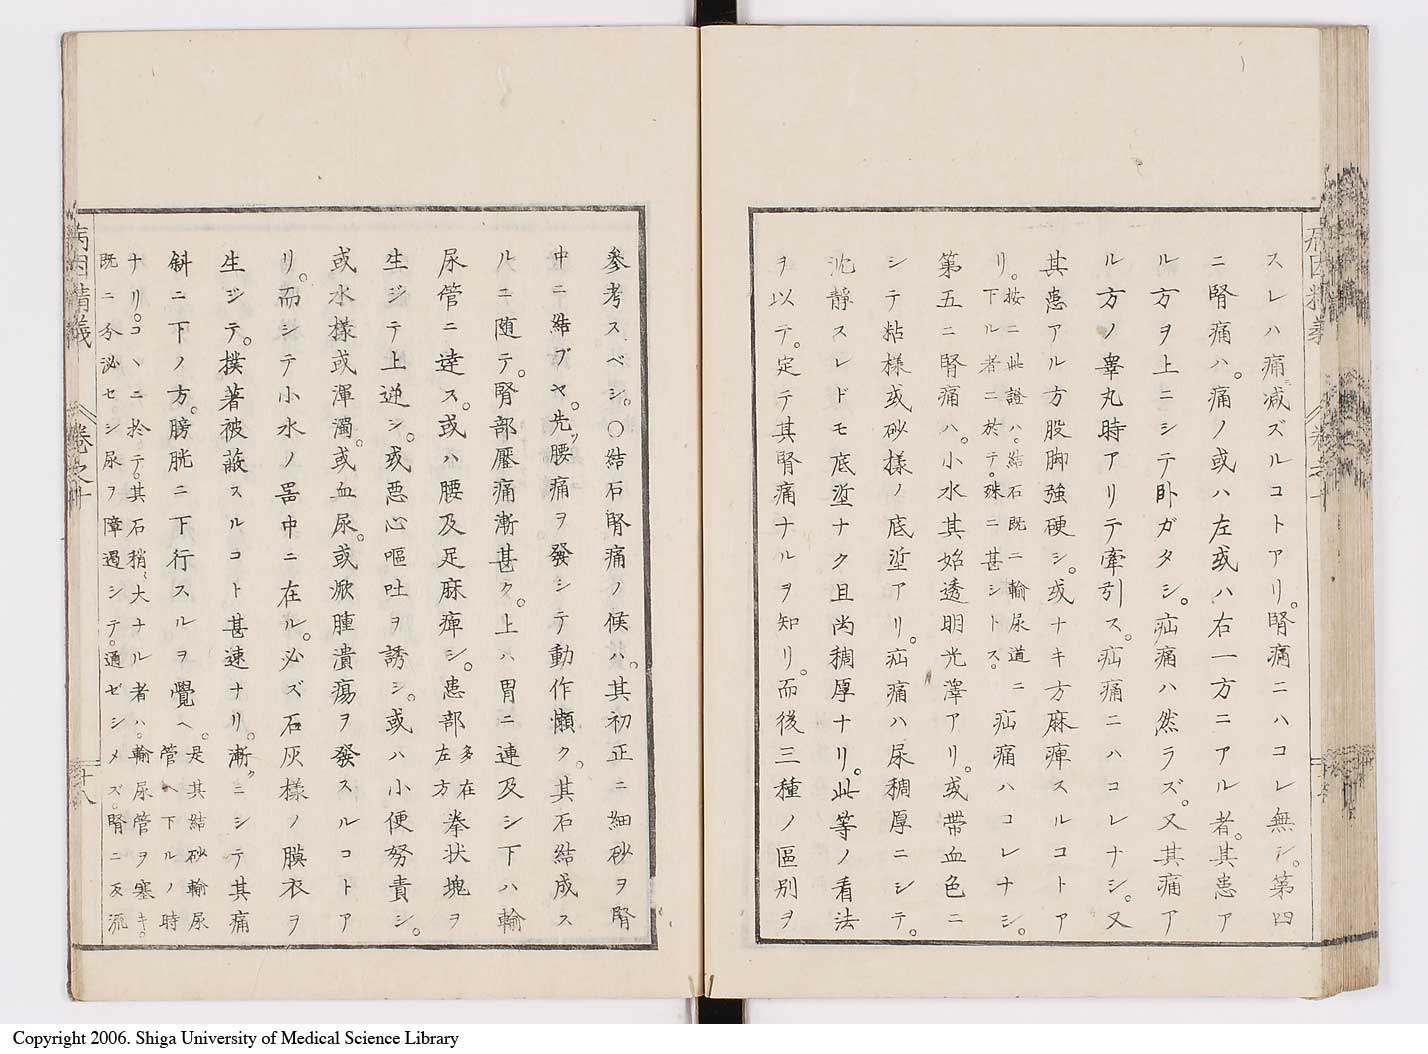 スレハ痛減ズルコトアリ。腎痛ニハコレ無シ。第四
ニ腎痛ハ。痛ノ或ハ左或ハ右一方ニアル者。其患ア
ル方ヲ上ニシテ臥ガタシ。疝痛ハ然ラズ。又其痛ア
ル方ノ睾丸時アリテ牽引ス。疝痛ニハコレナシ。又
其患アル方股脚強硬シ。或ナキ方麻痺スルコトア
リ。按ニ此證ハ。結石既ニ輸尿道ニ下ル者ニ於テ。殊ニ甚シトス。疝痛ハコレナシ。
第五ニ腎痛ハ。小水其始透明光澤アリ。或帶血色ニ
シテ粘様或砂様ノ底垽アリ。疝痛ハ尿稠厚ニシテ。
沈靜スレドモ底垽ナク且尚稠厚ナリ。此等ノ看法
ヲ以テ。定テ其腎痛ナルヲ知リ。而後三種ノ區別ヲ
參考スベシ。○結石腎痛ノ候ハ。其初正ニ細砂ヲ腎
中ニ結ブヤ。先ツ腰痛ヲ發シテ動作懶ク。其石結成ス
ルニ随テ。腎部壓痛漸甚ク。上ハ胃ニ連及シ下ハ輸
尿管ニ達ス。或ハ腰及足麻痺シ。患部多在左方拳状塊ヲ
生ジテ上逆シ。或惡心嘔吐ヲ誘シ。或ハ小便努責シ。
或水樣或渾濁。或血尿。或焮腫潰瘍ヲ發スルコトア
リ。而シテ小水ノ器中ニ在ル。必ズ石灰樣ノ膜衣ヲ
生ジテ。撲著被蔽スルコト甚速ナリ。漸クニシテ其痛
斜ニ下ノ方。膀胱ニ下行スルヲ覺ヘ。是其結砂輸尿管ヘ下ルノ時
ナリ。コヽニ於テ。其石稍大ナル者ハ。輸尿管ヲ塞キ。
既ニ分泌セシ尿ヲ障遏シテ。通ゼシメズ。腎ニ反流
病因精義
卷之十
十八